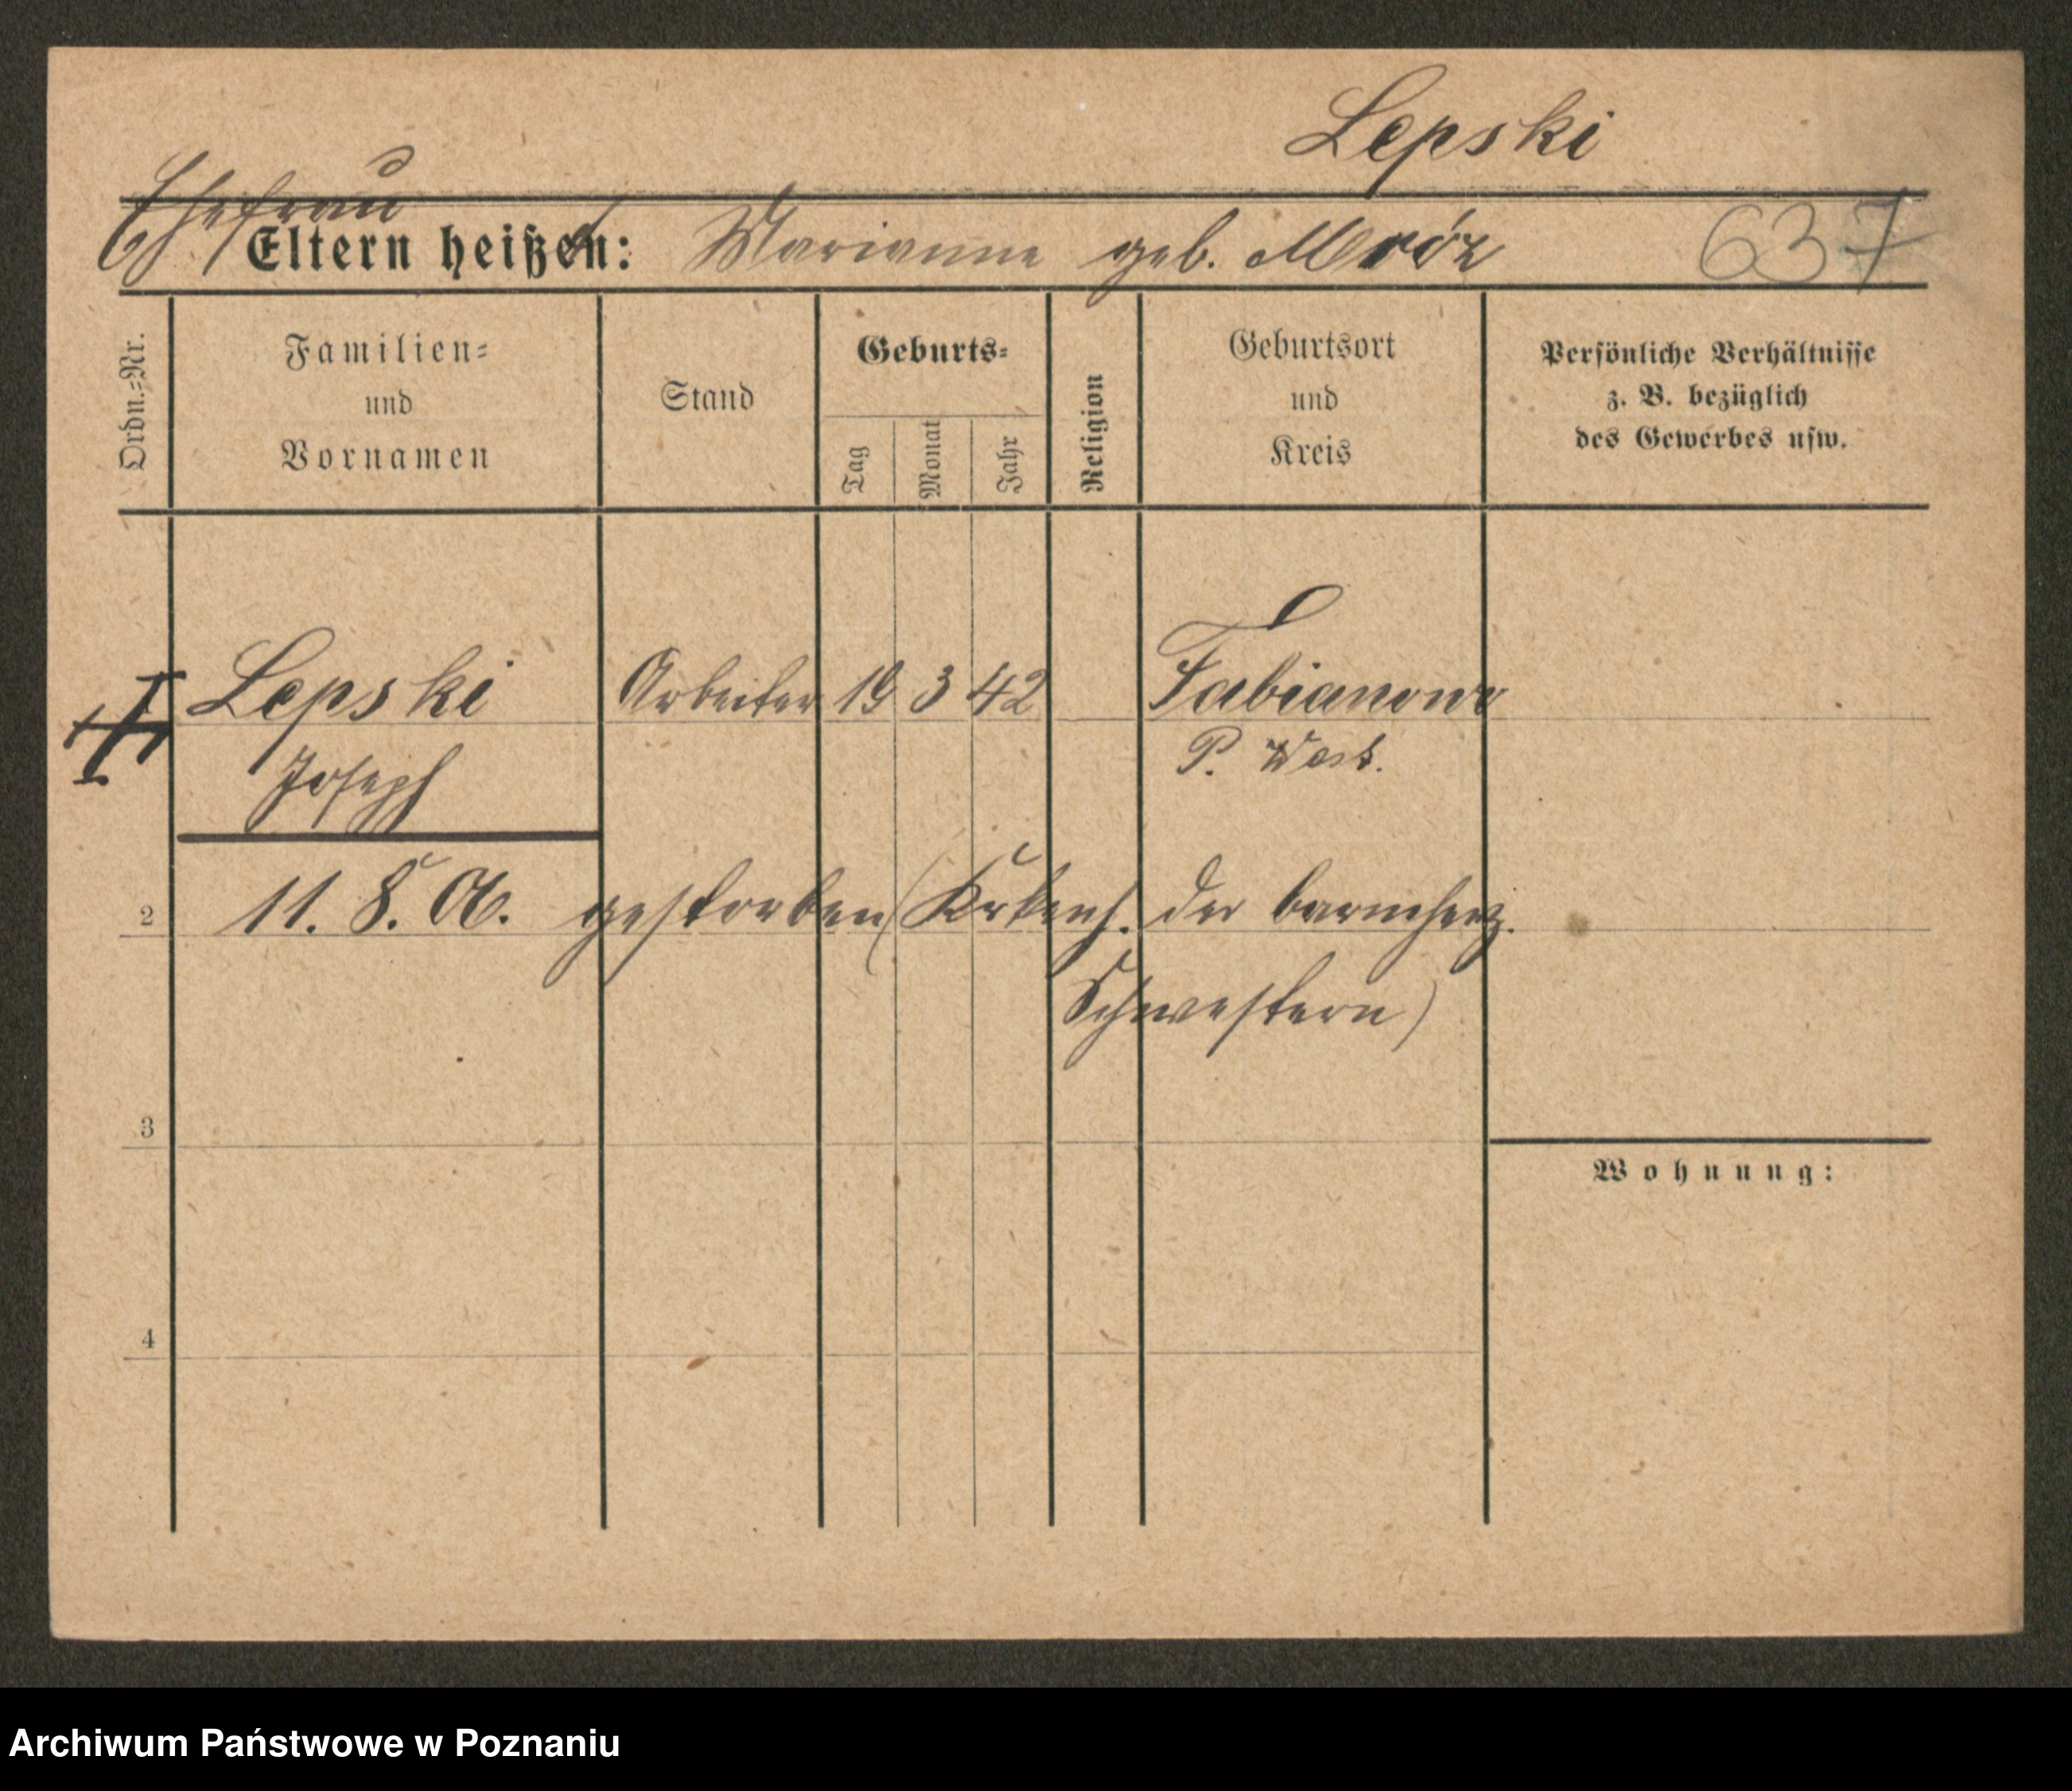 Lepski
Ehefrau
Eltern heißen: Marianne geb. Mróz 637
Ordn.=Nr.
Familien=
und
Vornamen
Stand
Geburts=
Tag
Monat
Jahr
Religion
Geburtsort
und
Kreis
Persönliche Verhältnisse
z. B. bezüglich
des Gewerbes usw.
Lepski Arbeiter 19 3 42 Fabianowo
Joseph P. West.
2 11. 8. 06. gestorben (Krkenh. der barmherz.
Schwestern)
3
Wohnung:
4
Archiwum Państwowe w Poznaniu